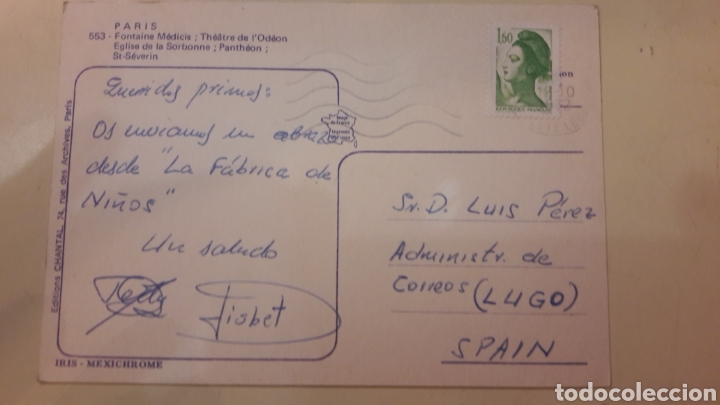 PARIS
553 - Fontaine Médicis ; Théâtre de l'Odéon
Eglise de la Sorbonne ; Panthéon ;
St-Séverin
1,60
REPUBLIQUE FRANÇAISE
Queridos primos:
Os enviamos un abrazo
desde "La Fábrica de
Niños"
Un saludo
Lisbet
Sr. D. Luis Pérez
Administr. de
Correos (LUGO)
SPAIN
Editions CHANTAL, 74, rue des Archives, Paris
IRIS - MEXICHROME
todocoleccion
todocoleccion.net